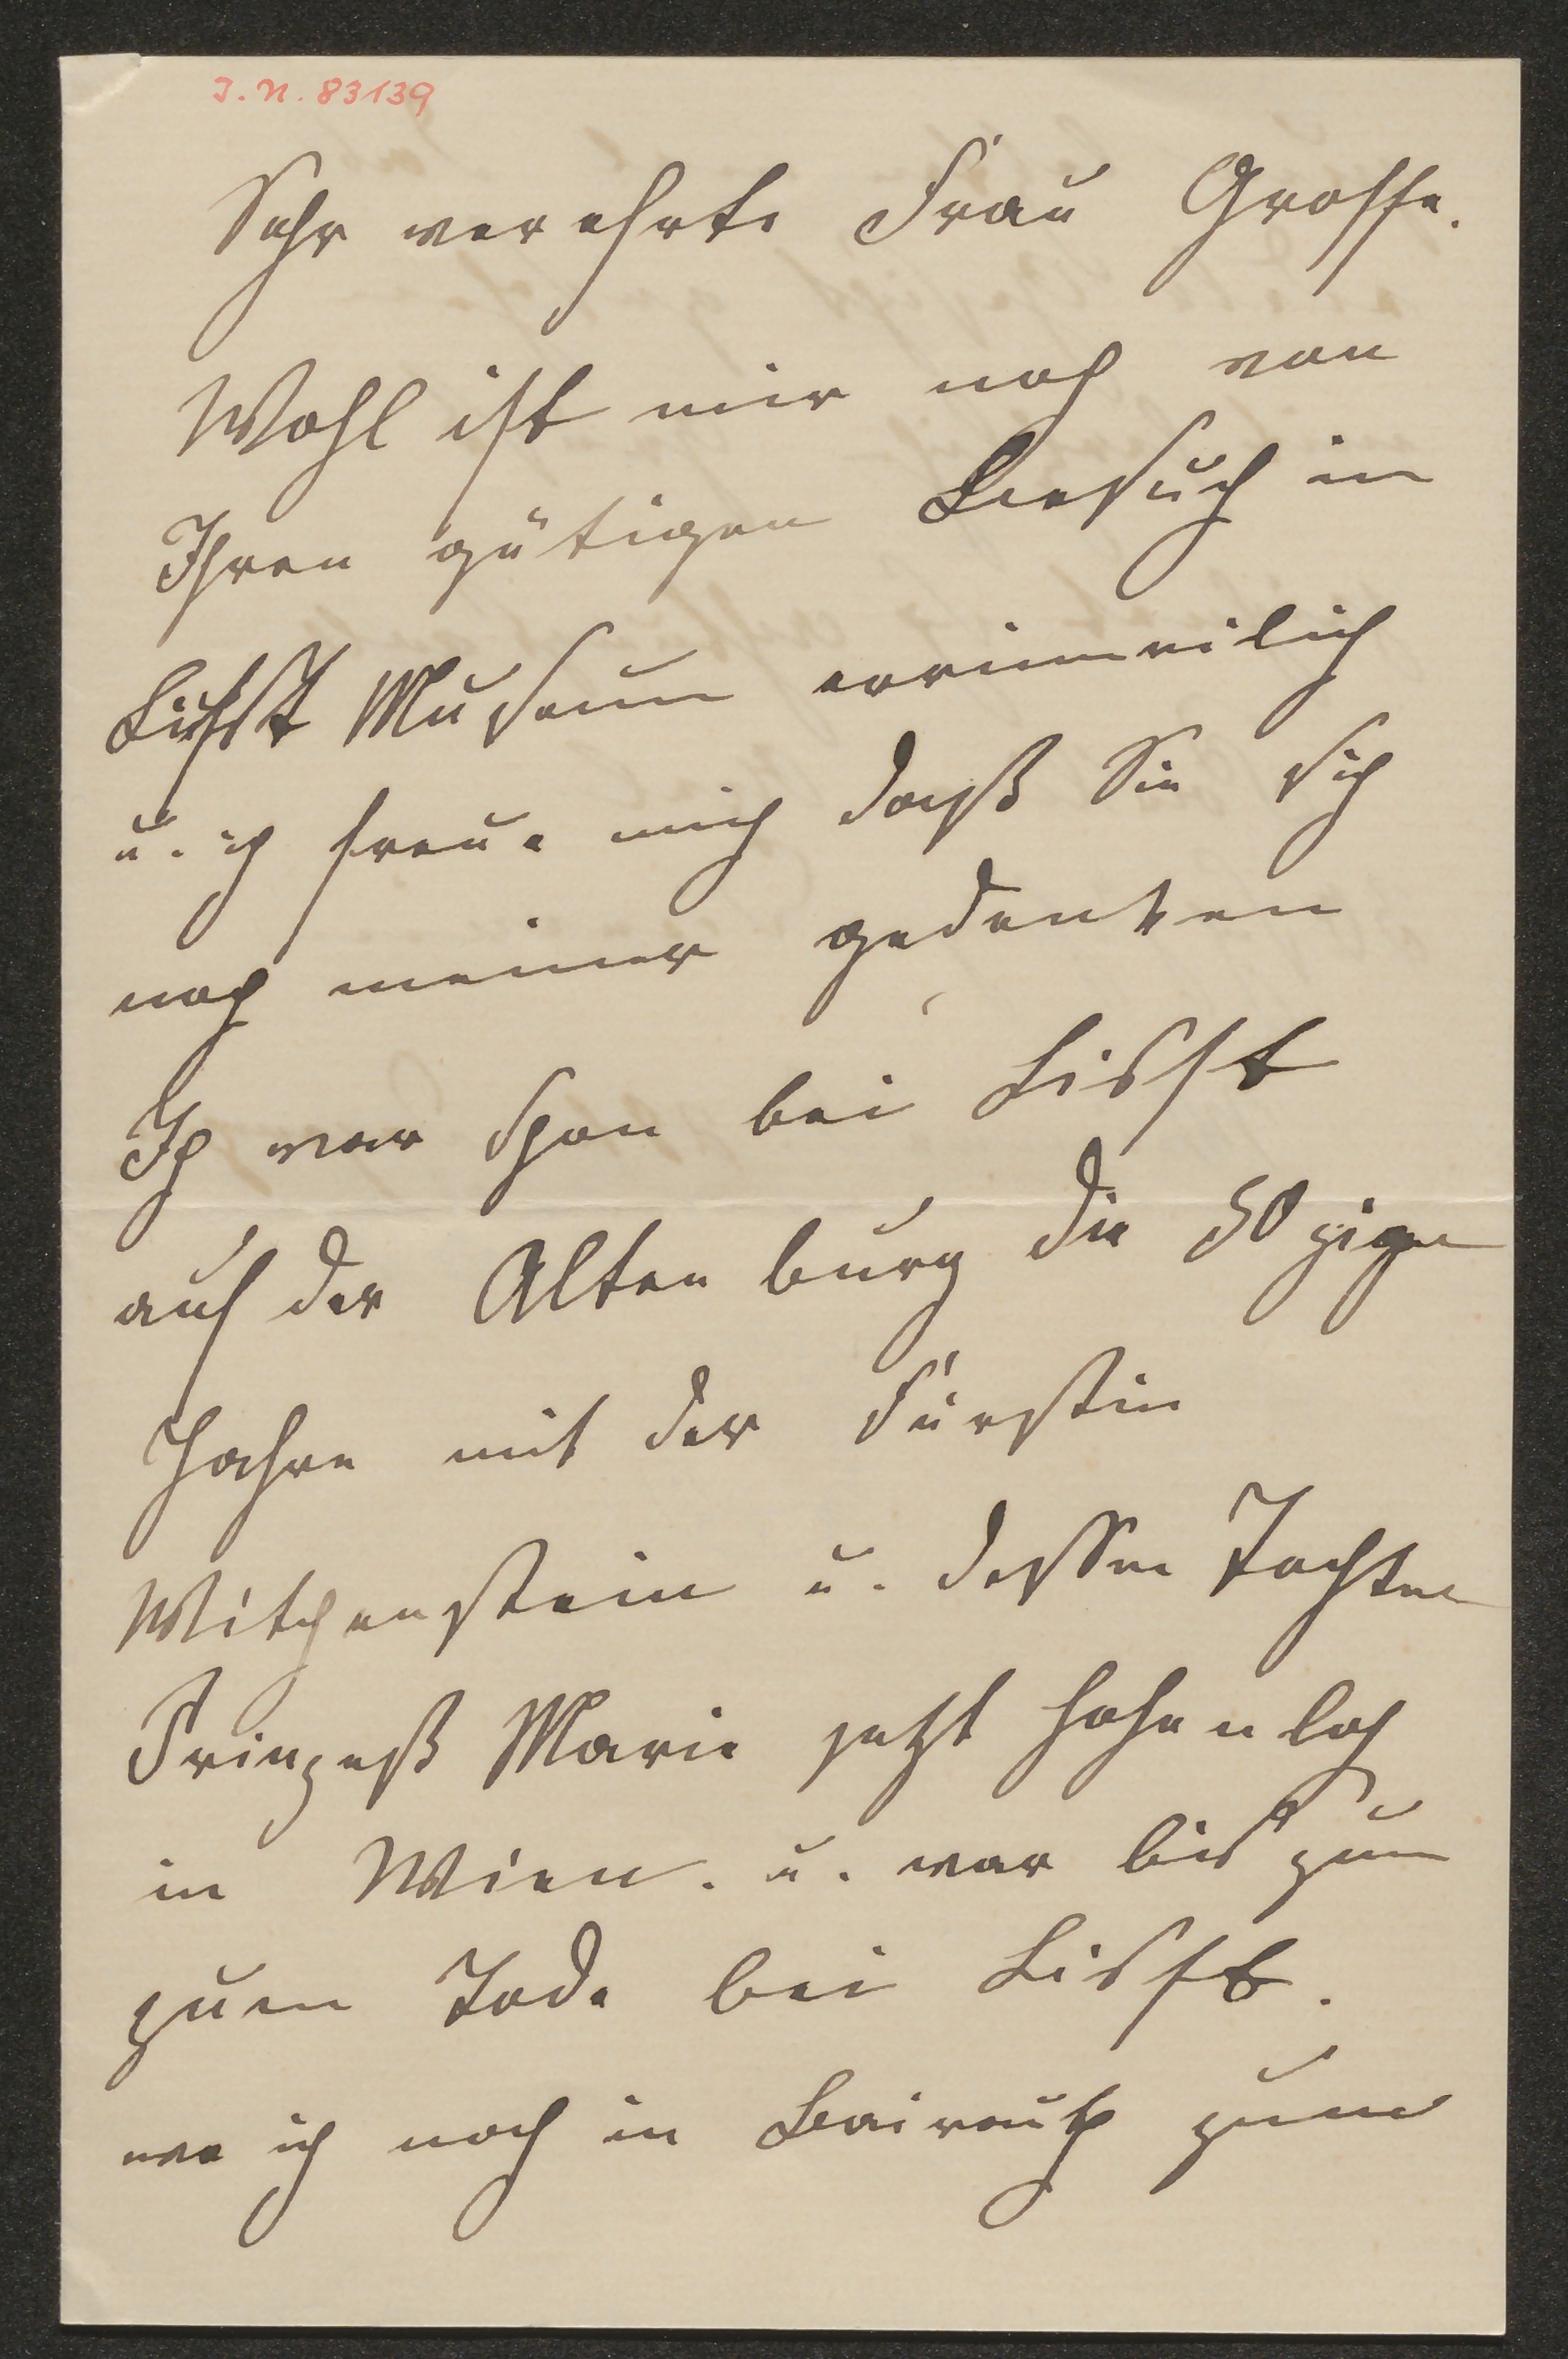 I. N. 83139
Sehr verehrte Frau Grosse.
Wohl ist mir noch von
Ihren gütigen Besuch in
Lisst Museum errinnerlich
u. ich freue mich daß Sie sich
noch meiner gedenken
Ich war schon bei Lisst
auf der Altenburg die 50ziger
Jahre mit der Fürstin
Witgenstein u. dessen Tochter
Prinzeß Marie jetzt Hohenloh
in Wien. u. war bis zum
zum Tode bei Lisst.
wo ich noch in Bairauth zum